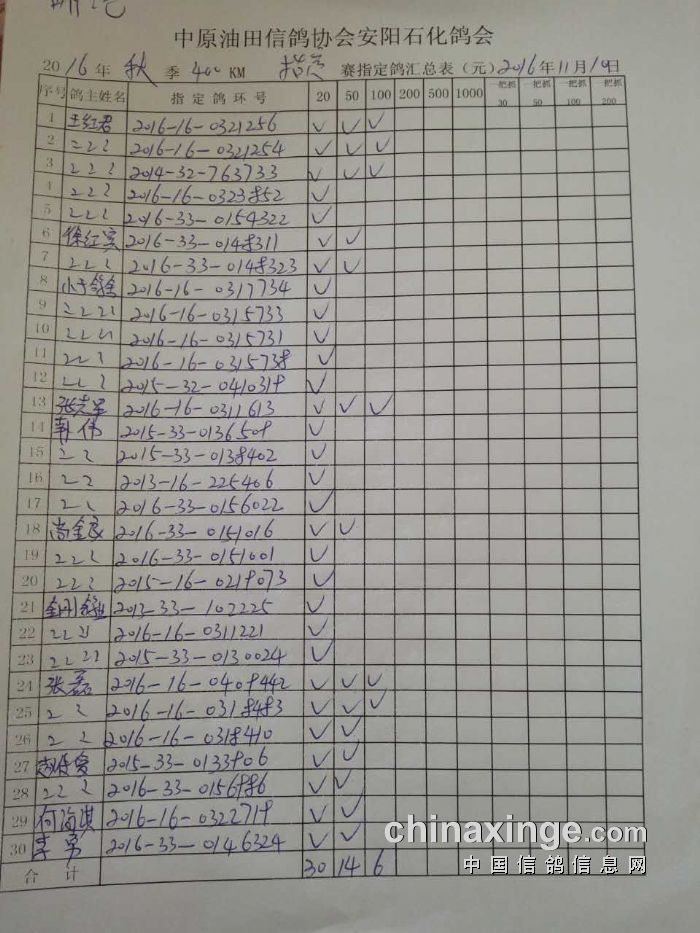 中原油田信鸽协会安阳石化鸽会
2016年 秋 季 400 KM 指定 赛指定鸽汇总表(元)2016年11月10日
序号 鸽主姓名 指定鸽环号 20 50 100 200 500 1000 一把抓30 一把抓50 一把抓100 一把抓200
1 王红君 2016-16-0321256 ✓ ✓ ✓
2 2016-16-0321254 ✓ ✓ ✓
3 2014-32-763733 ✓ ✓ ✓
4 2016-16-0323852 ✓
5 2016-33-0154322 ✓
6 徐红宾 2016-33-0148311 ✓ ✓
7 2016-33-0148323 ✓ ✓
8 2016-16-0317734 ✓
9 2016-16-0315733 ✓
10 2016-16-0315731 ✓
11 2016-16-0315738 ✓
12 2015-32-0410319 ✓
13 张志军 2016-16-0311613 ✓ ✓ ✓
14 韩伟 2015-33-0136509 ✓
15 2015-33-0138402 ✓
16 2013-16-225406 ✓
17 2016-33-0156022 ✓
18 尚金良 2016-33-0151016 ✓ ✓
19 2016-33-0151001 ✓
20 2015-16-0219073 ✓
21 2013-33-107225 ✓
22 2016-16-0311221 ✓
23 2015-33-0130024 ✓
24 张磊 2016-16-0409442 ✓ ✓ ✓
25 2016-16-0318483 ✓ ✓ ✓
26 2016-16-0318410 ✓ ✓
27 2015-33-0133906 ✓ ✓
28 2016-33-0156986 ✓ ✓
29 何海淇 2016-16-0322719 ✓ ✓
30 李勇 2016-33-0146324 ✓ ✓
合计 30 14 6
chinaxinge.com
中国信鸽信息网